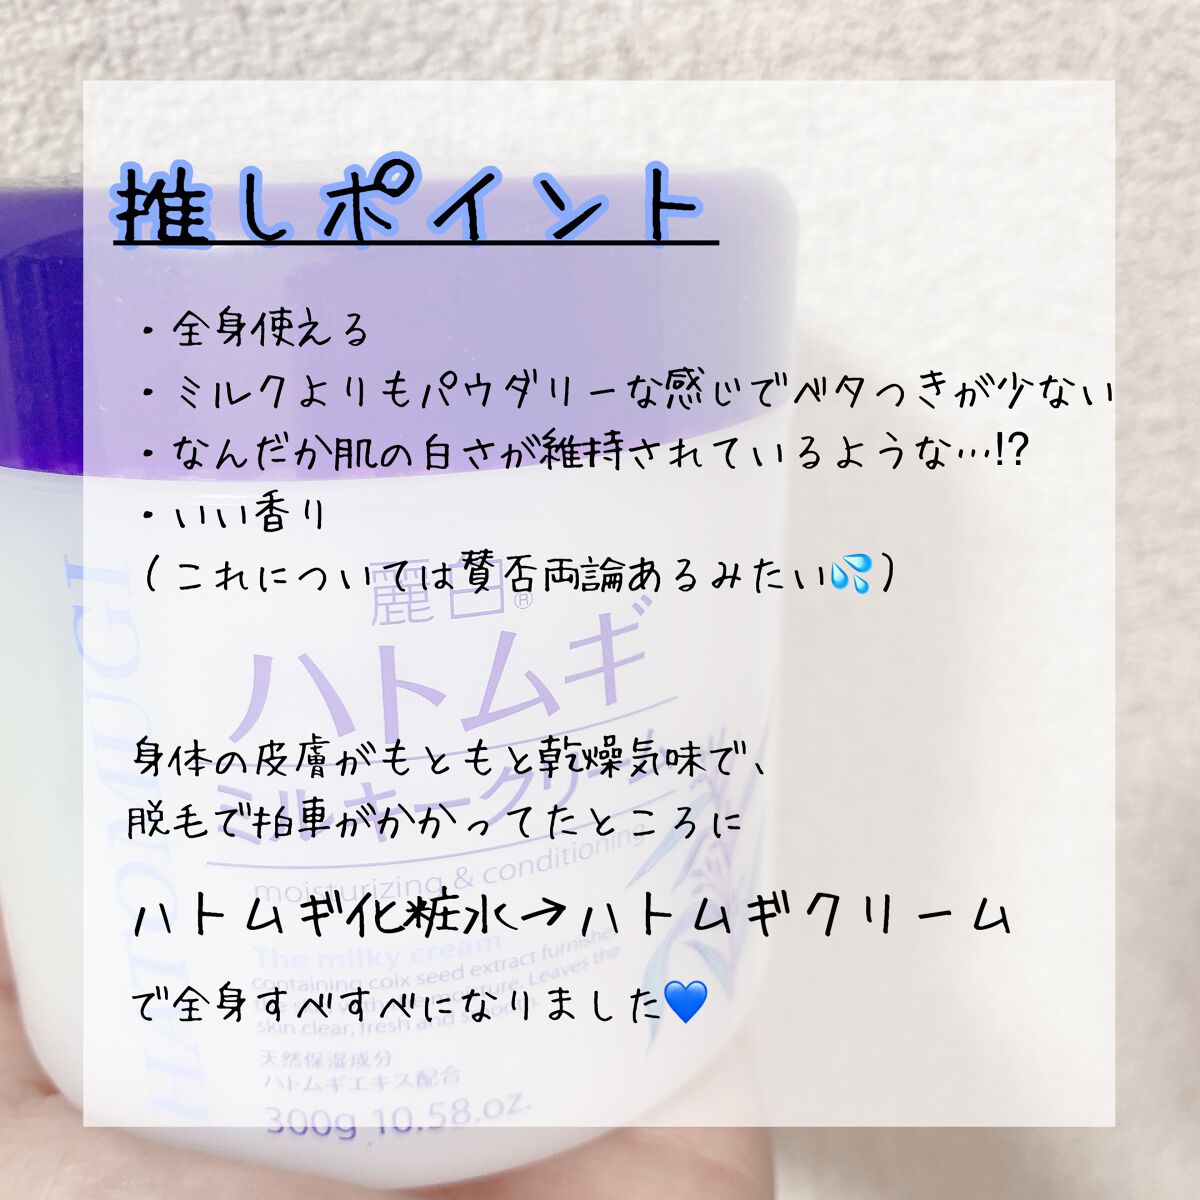 推しポイント
・全身使える
・ミルクよりもパウダリーな感じでベタつきが少ない
・なんだか肌の白さが維持されているような…!?
・いい香り
（これについては賛否両論あるみたい💦）
身体の皮膚がもともと乾燥気味で、
脱毛で拍車がかかってたところに
ハトムギ化粧水→ハトムギクリーム
で全身すべすべになりました💙
HATOMUGI
麗白®
ハトムギ
ミルキークリーム
moisturizing & conditioning
The milky cream
containing coix seed extract furnishes
the skin with moisture. Leaves the
skin clear, fresh and smooth.
天然保湿成分
ハトムギエキス配合
300g 10.58.oz.